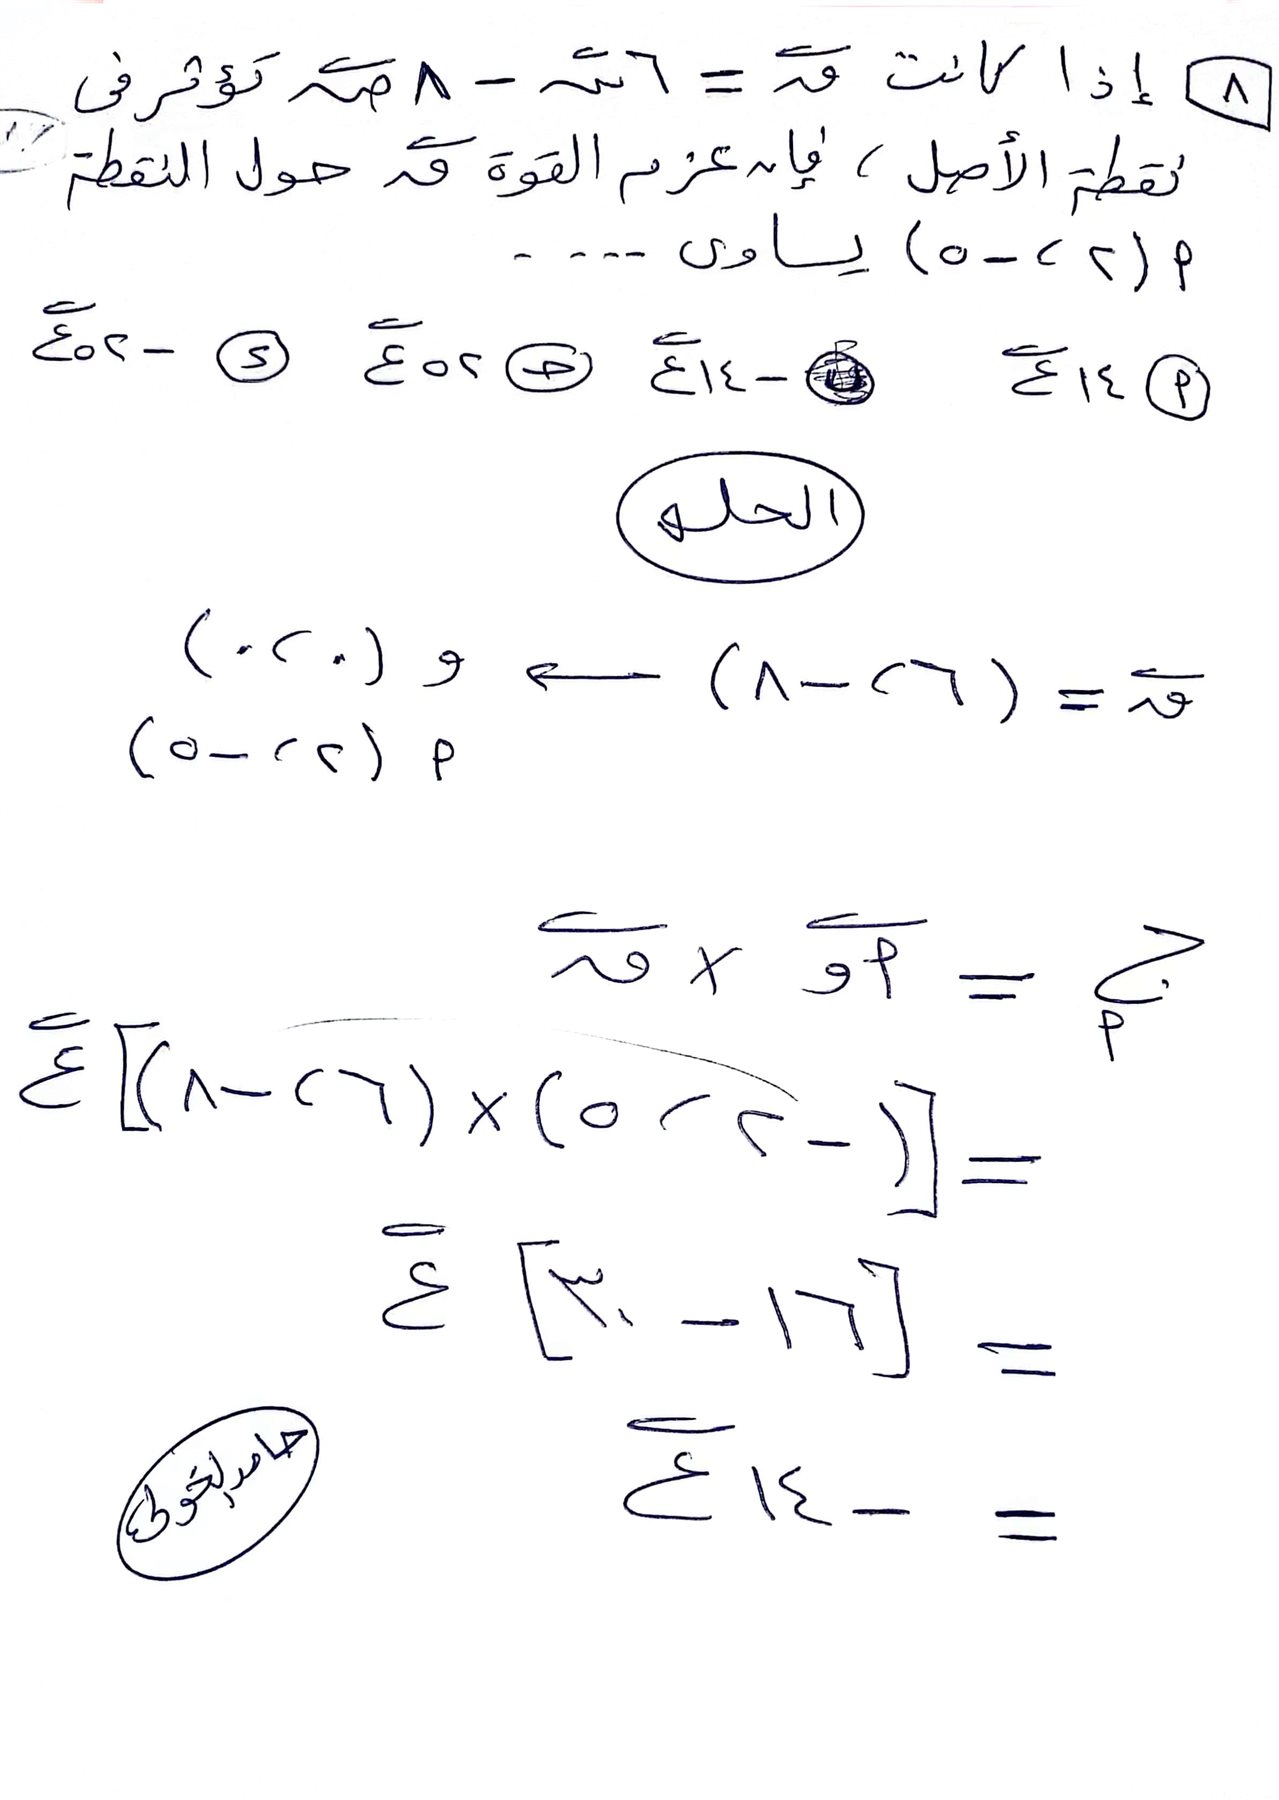 ٨ إذا كانت ق = ٦ س - ٨ ص تؤثر فى
نقطة الأصل ، فإن عزم القوة ق حول النقطة
م (٢ ، -٥) يساوى ....
م ١٤ ع ب -١٤ ع ج ٥٢ ع د -٥٢ ع
الحل
ق = (٦ ، -٨) ← و (٠ ، ٠)
م (٢ ، -٥)
ج م = م و × ق
= [(-٢ ، ٥) × (٦ ، -٨)] ع
= [١٦ - ٣٠] ع
= -١٤ ع
حامد الخولى